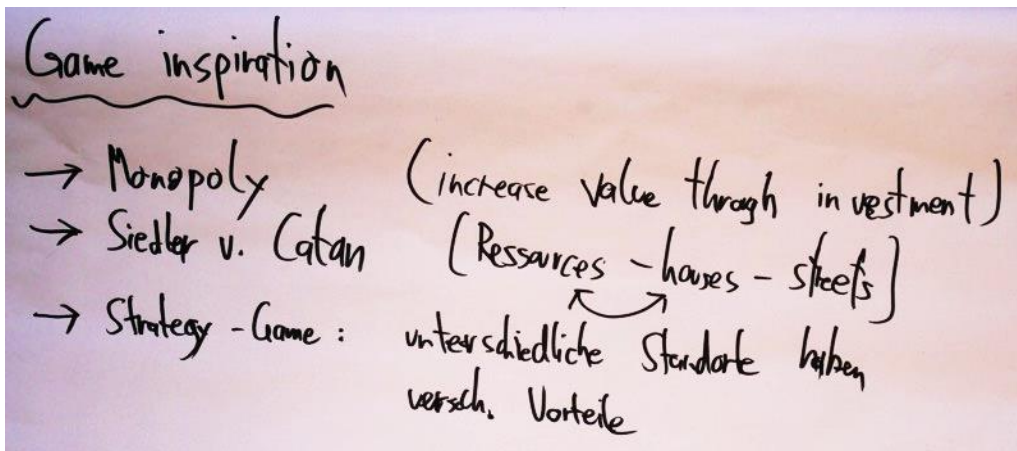 Game inspiration
→ Monopoly (increase value through investment)
→ Siedler v. Catan (Ressources - houses - streets)
→ Strategy-Game: unterschiedliche Standorte haben
versch. Vorteile